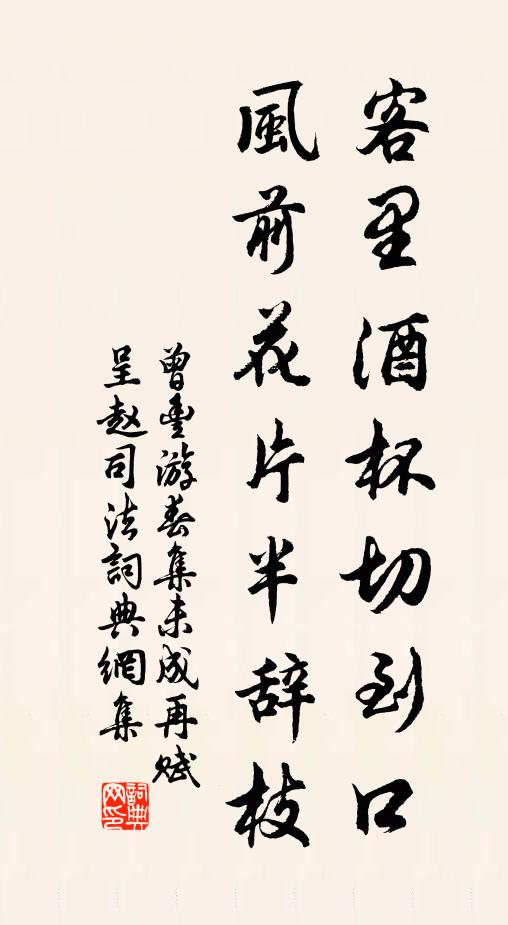 客里酒杯切到口
風前花片半辞枝
曾豐游春集未成再赋
呈赵司法詞典網集
詞典网印